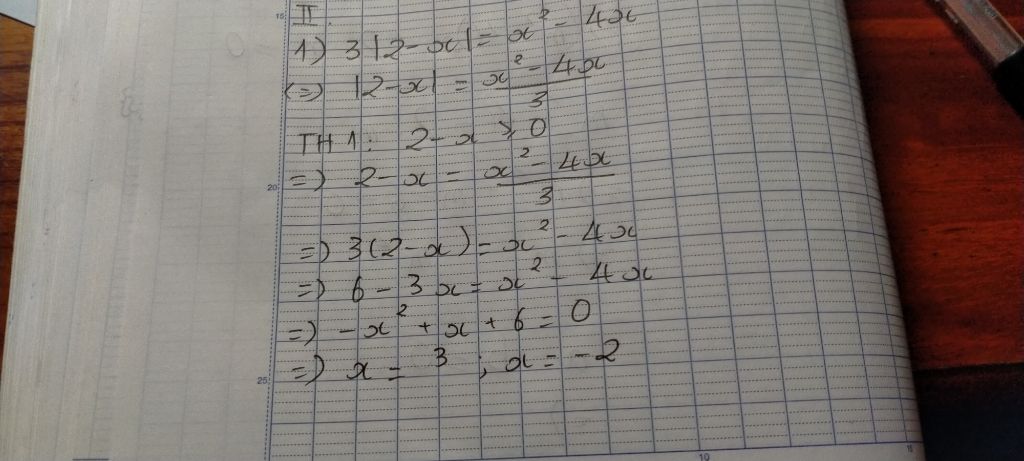 15
II
1) 3|2-x| = x² - 4x
<=> |2-x| = (x² - 4x)/3
TH1: 2-x ≥ 0
=> 2-x = (x² - 4x)/3
20
=> 3(2-x) = x² - 4x
=> 6 - 3x = x² - 4x
=> -x² + x + 6 = 0
=> x = 3 ; x = -2
25
10
15